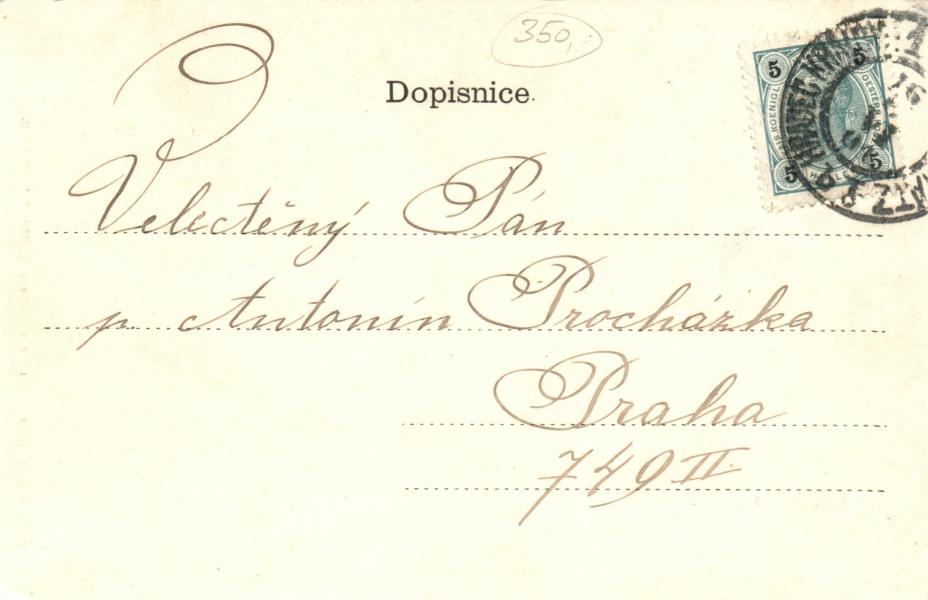 350,-
Dopisnice.
5 5
5 5
Velectěný Pán
p. Antonín Procházka
Praha
749 II